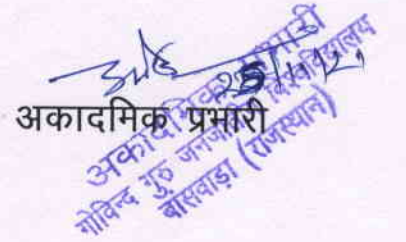 25/11/21
अकादमिक प्रभारी
अकादमिक प्रभारी
गोविन्द गुरु जनजातीय विश्वविद्यालय
बांसवाड़ा (राजस्थान)